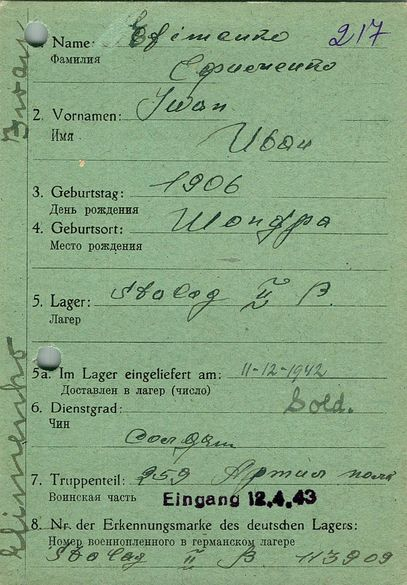 217
1. Name: Efimenko
Фамилия
Ефименко
2. Vornamen: Iwan
Имя
Иван
3. Geburtstag: 1906
День рождения
4. Geburtsort: Шондра
Место рождения
5. Lager: Stalag II B.
Лагер
5a. Im Lager eingeliefert am: 11-12-1942
Доставлен в лагер (число)
6. Dienstgrad: Sold.
Чин
солдат
7. Truppenteil: 259 Артил полк
Воинская часть
Eingang 12.4.43
8. Nr. der Erkennungsmarke des deutschen Lagers:
Номер военнопленного в германском лагере
Stalag II B. 113909
Iwan